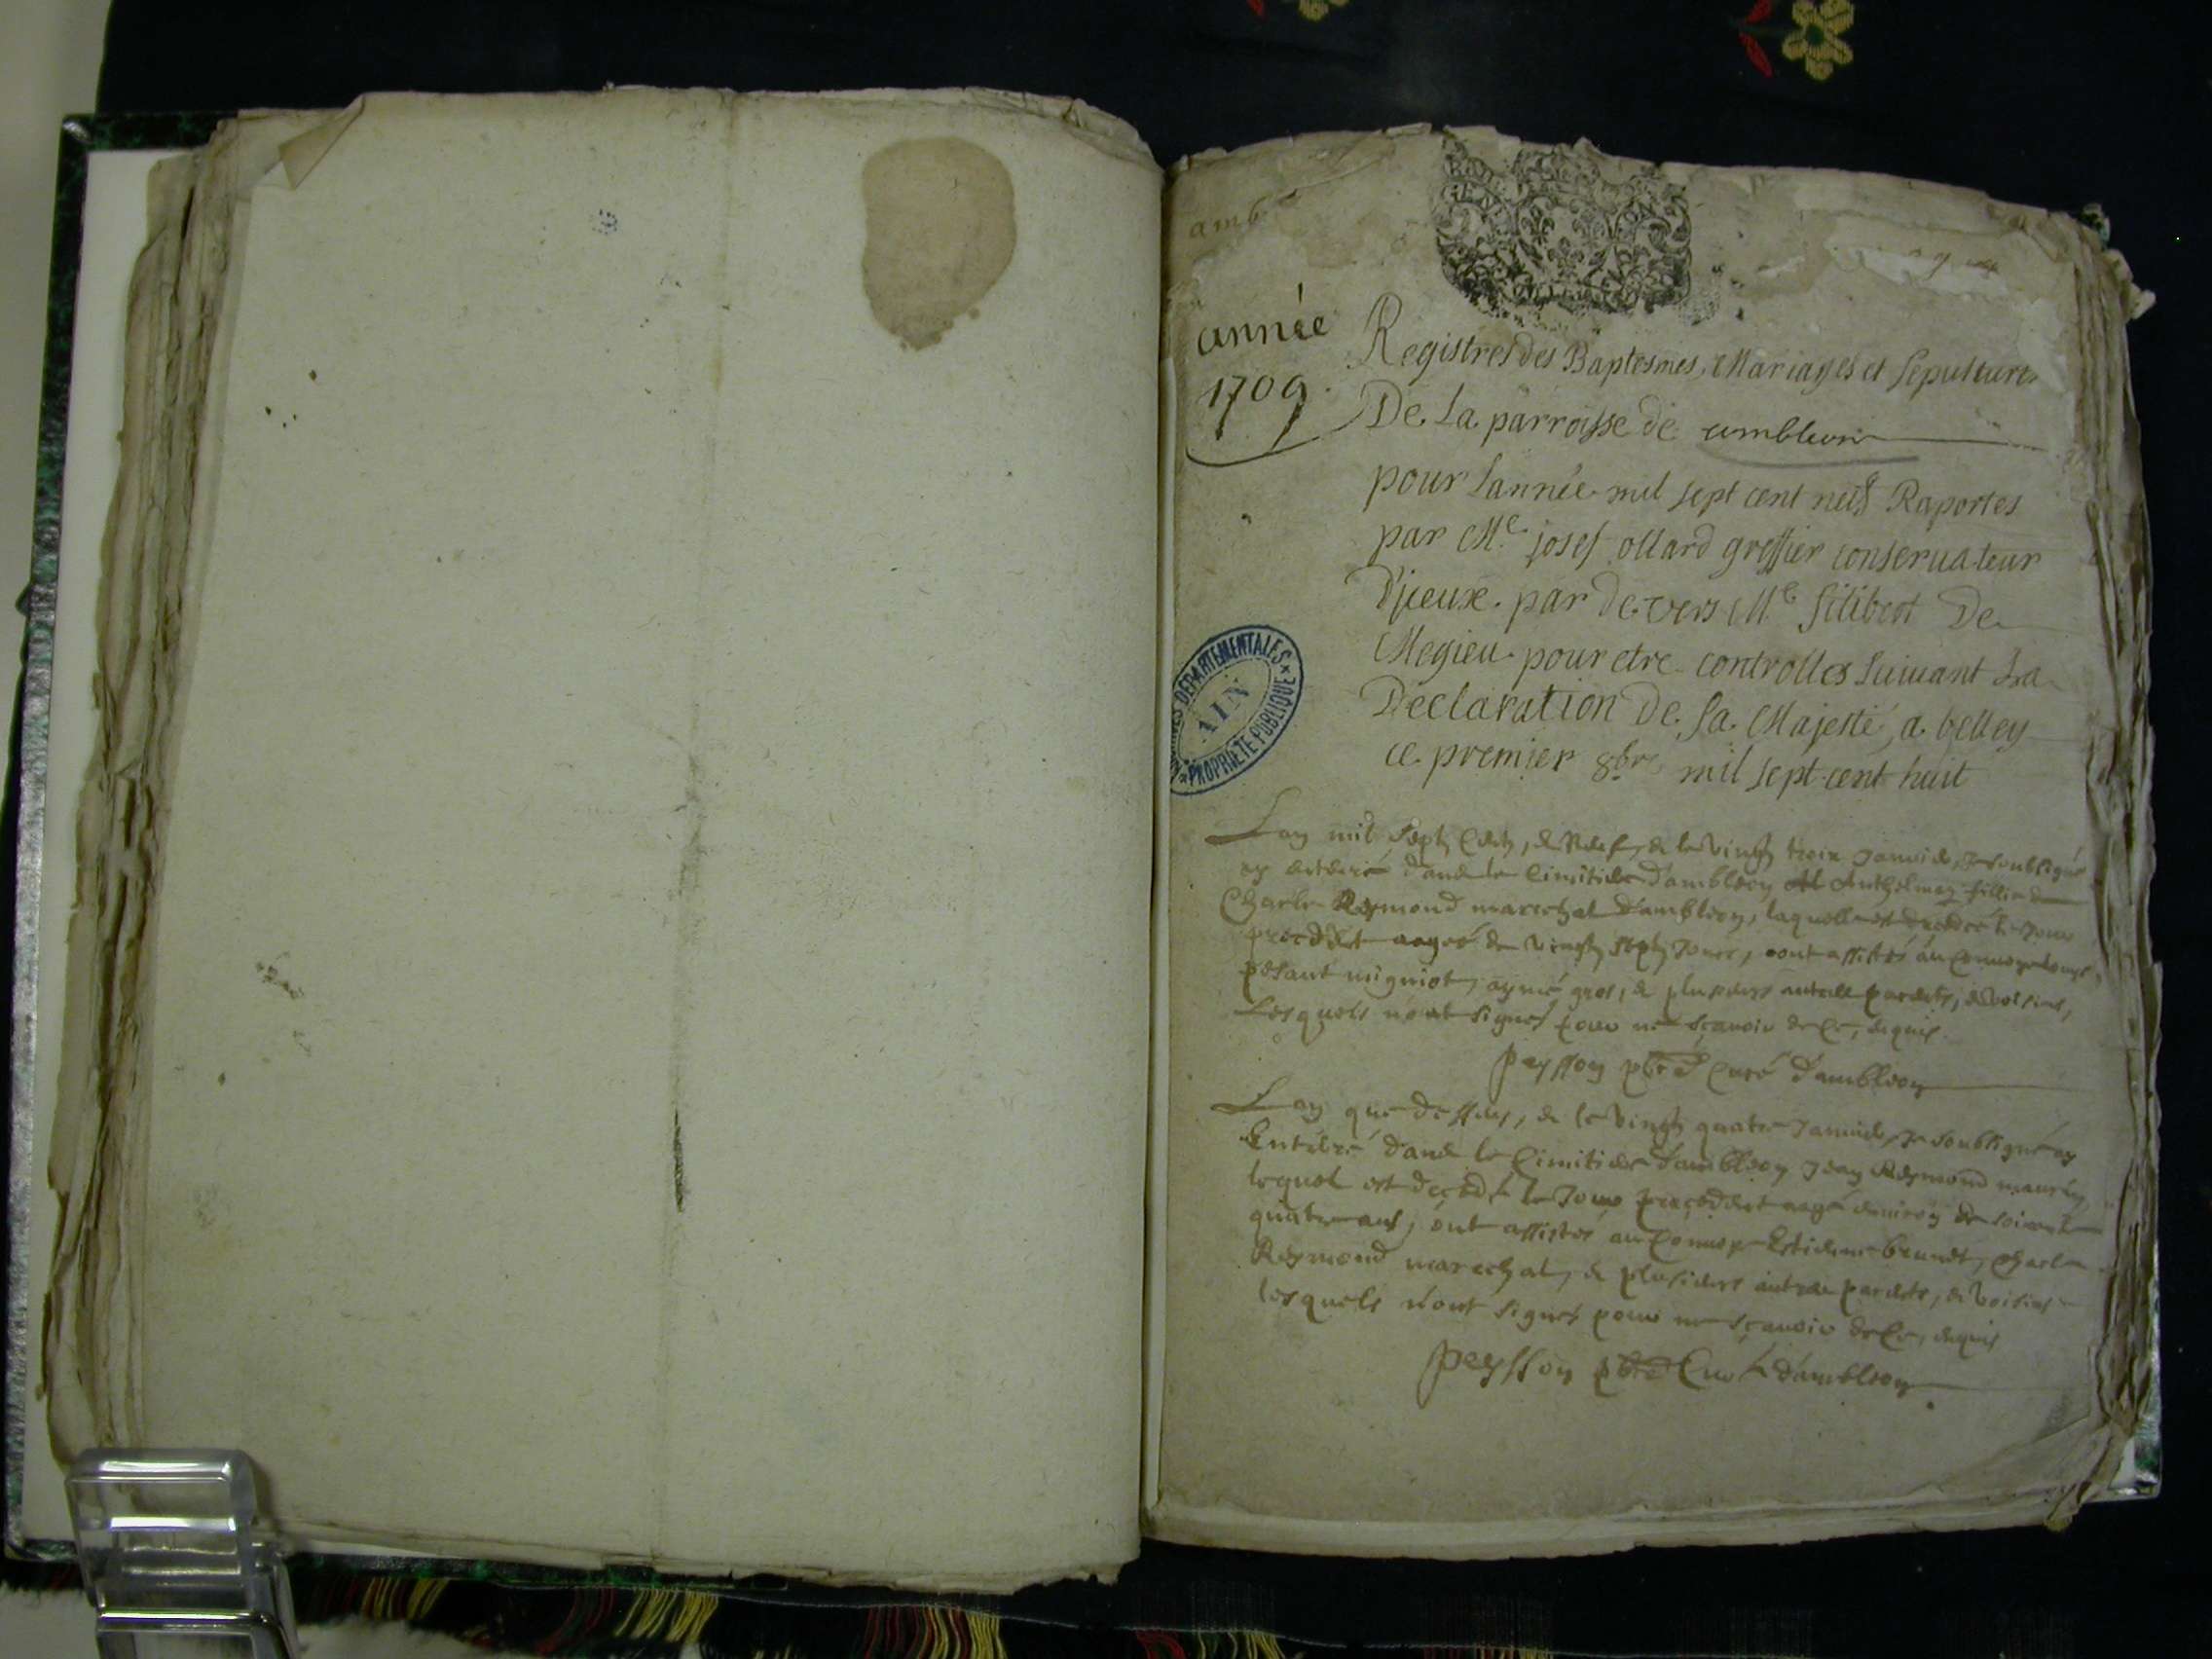 amb
GEN
année
1709
Registres des Baptesmes, Mariages et Sepultures
De La parroisse de ambleon
pour Lannée mil sept cent neuf Raportes
par Me josef ollard greffier conseruateur
D'jceux par devers Me filibert De
Megieu pour etre controlles suiuant La
Declaration De sa Majesté, a belley
ce premier 8bre mil sept cent huit
ARCHIVES DEPARTEMENTALES
AIN
PROPRIETE PUBLIQUE
Lan mil sept cent, et neuf, et le vingt trois janvier, je soubsigné
ay enterré dans le cimitiere d'ambleon Anthelmaz fillie de
Charle Reymond marechal d'ambleon, laquelle est decedée le jour
precedent aagée de vingt sept jours, ont assistés au convoy
pesant migniot, aymé gros, et plusieurs autres parents, et voisins,
Lesquels n'ont signés pour ne sçavoir de ce, enquis
peysson pbre et curé d'ambleon
Lan que dessus, et le vingt quatre janvier, je soubsigné ay
Enterré dans le cimitiere d'ambleon jean Reymond
lequel est decedé le jour precedent aagé environ de soixante
quatre ans, ont assistés au convoy Estienne brunet, charle
Reymond marechal, et plusieurs autres parents, et voisins
lesquels n'ont signés pour ne sçavoir de ce, enquis
peysson pbre Curé d'ambleon